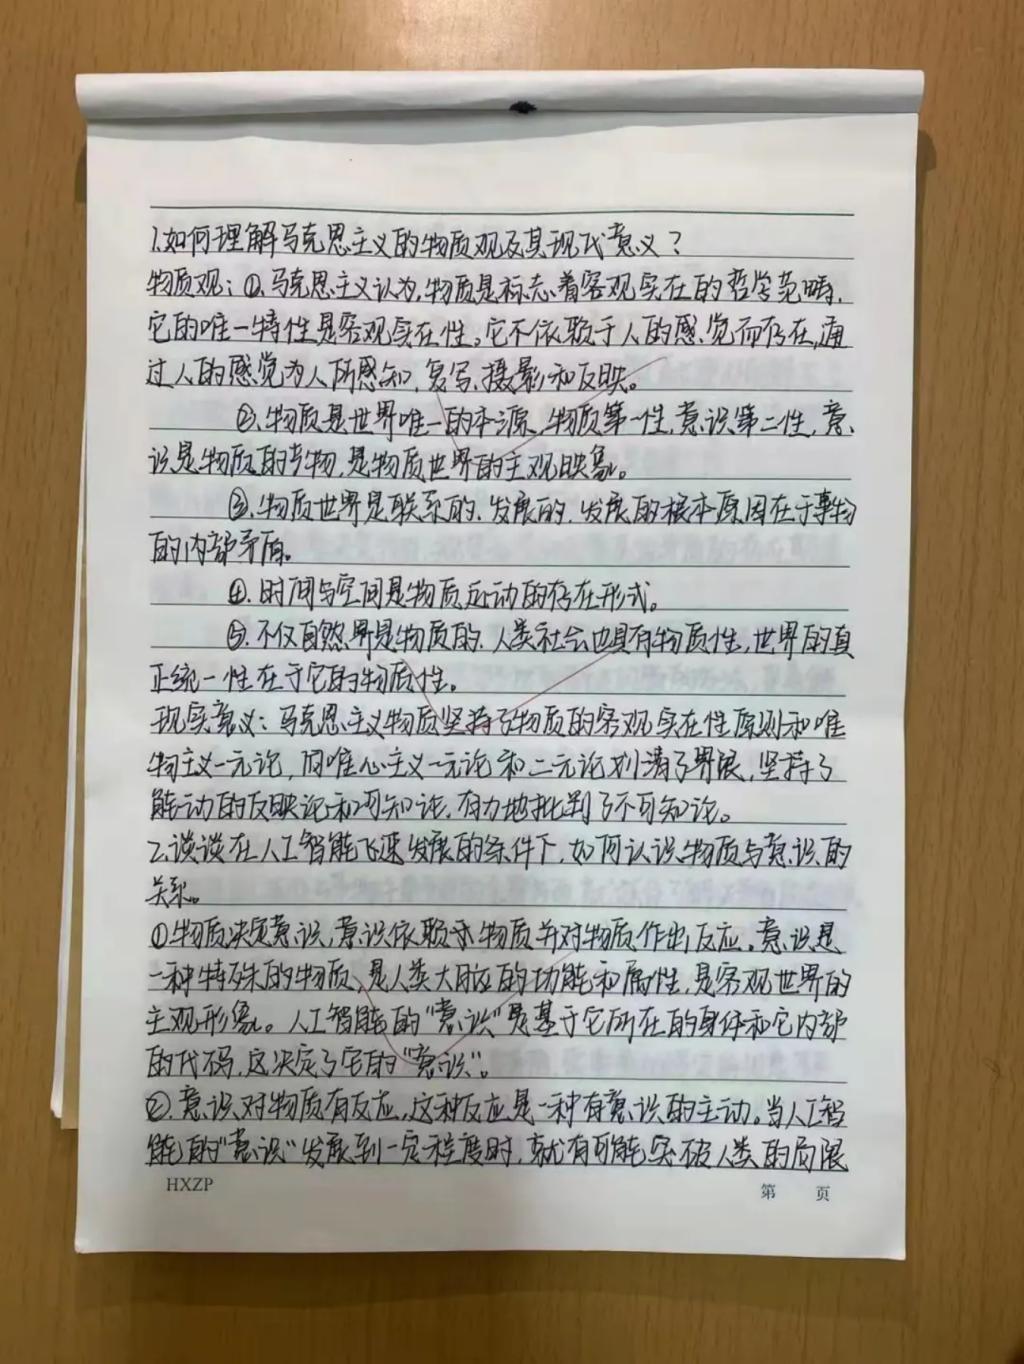 1.如何理解马克思主义的物质观及其现代意义？
物质观：①.马克思主义认为,物质是标志着客观实在的哲学范畴,
它的唯一特性是客观实在性。它不依赖于人的感觉而存在,通
过人的感觉为人所感知、复写、摄影和反映。
②.物质是世界唯一的本源,物质第一性,意识第二性,意
识是物质的产物,是物质世界的主观映象。
③.物质世界是联系的、发展的,发展的根本原因在于事物
的内部矛盾。
④.时间与空间是物质运动的存在形式。
⑤.不仅自然界是物质的、人类社会也具有物质性,世界的真
正统一性在于它的物质性。
现实意义：马克思主义物质坚持了物质的客观实在性原则和唯
物主义一元论,同唯心主义一元论和二元论划清了界限,坚持了
能动的反映论和可知论,有力地批判了不可知论。
2.谈谈在人工智能飞速发展的条件下,如何认识物质与意识的
关系。
①物质决定意识,意识依赖于物质并对物质作出反应。意识是
一种特殊的物质、是人类大脑的功能和属性,是客观世界的
主观形象。人工智能的“意识”是基于它所在的身体和它内部
的代码,这决定了它的“意识”。
②.意识对物质有反应,这种反应是一种有意识的主动。当人工智
能的“意识”发展到一定程度时,就有可能突破人类的局限
HXZP
第 页